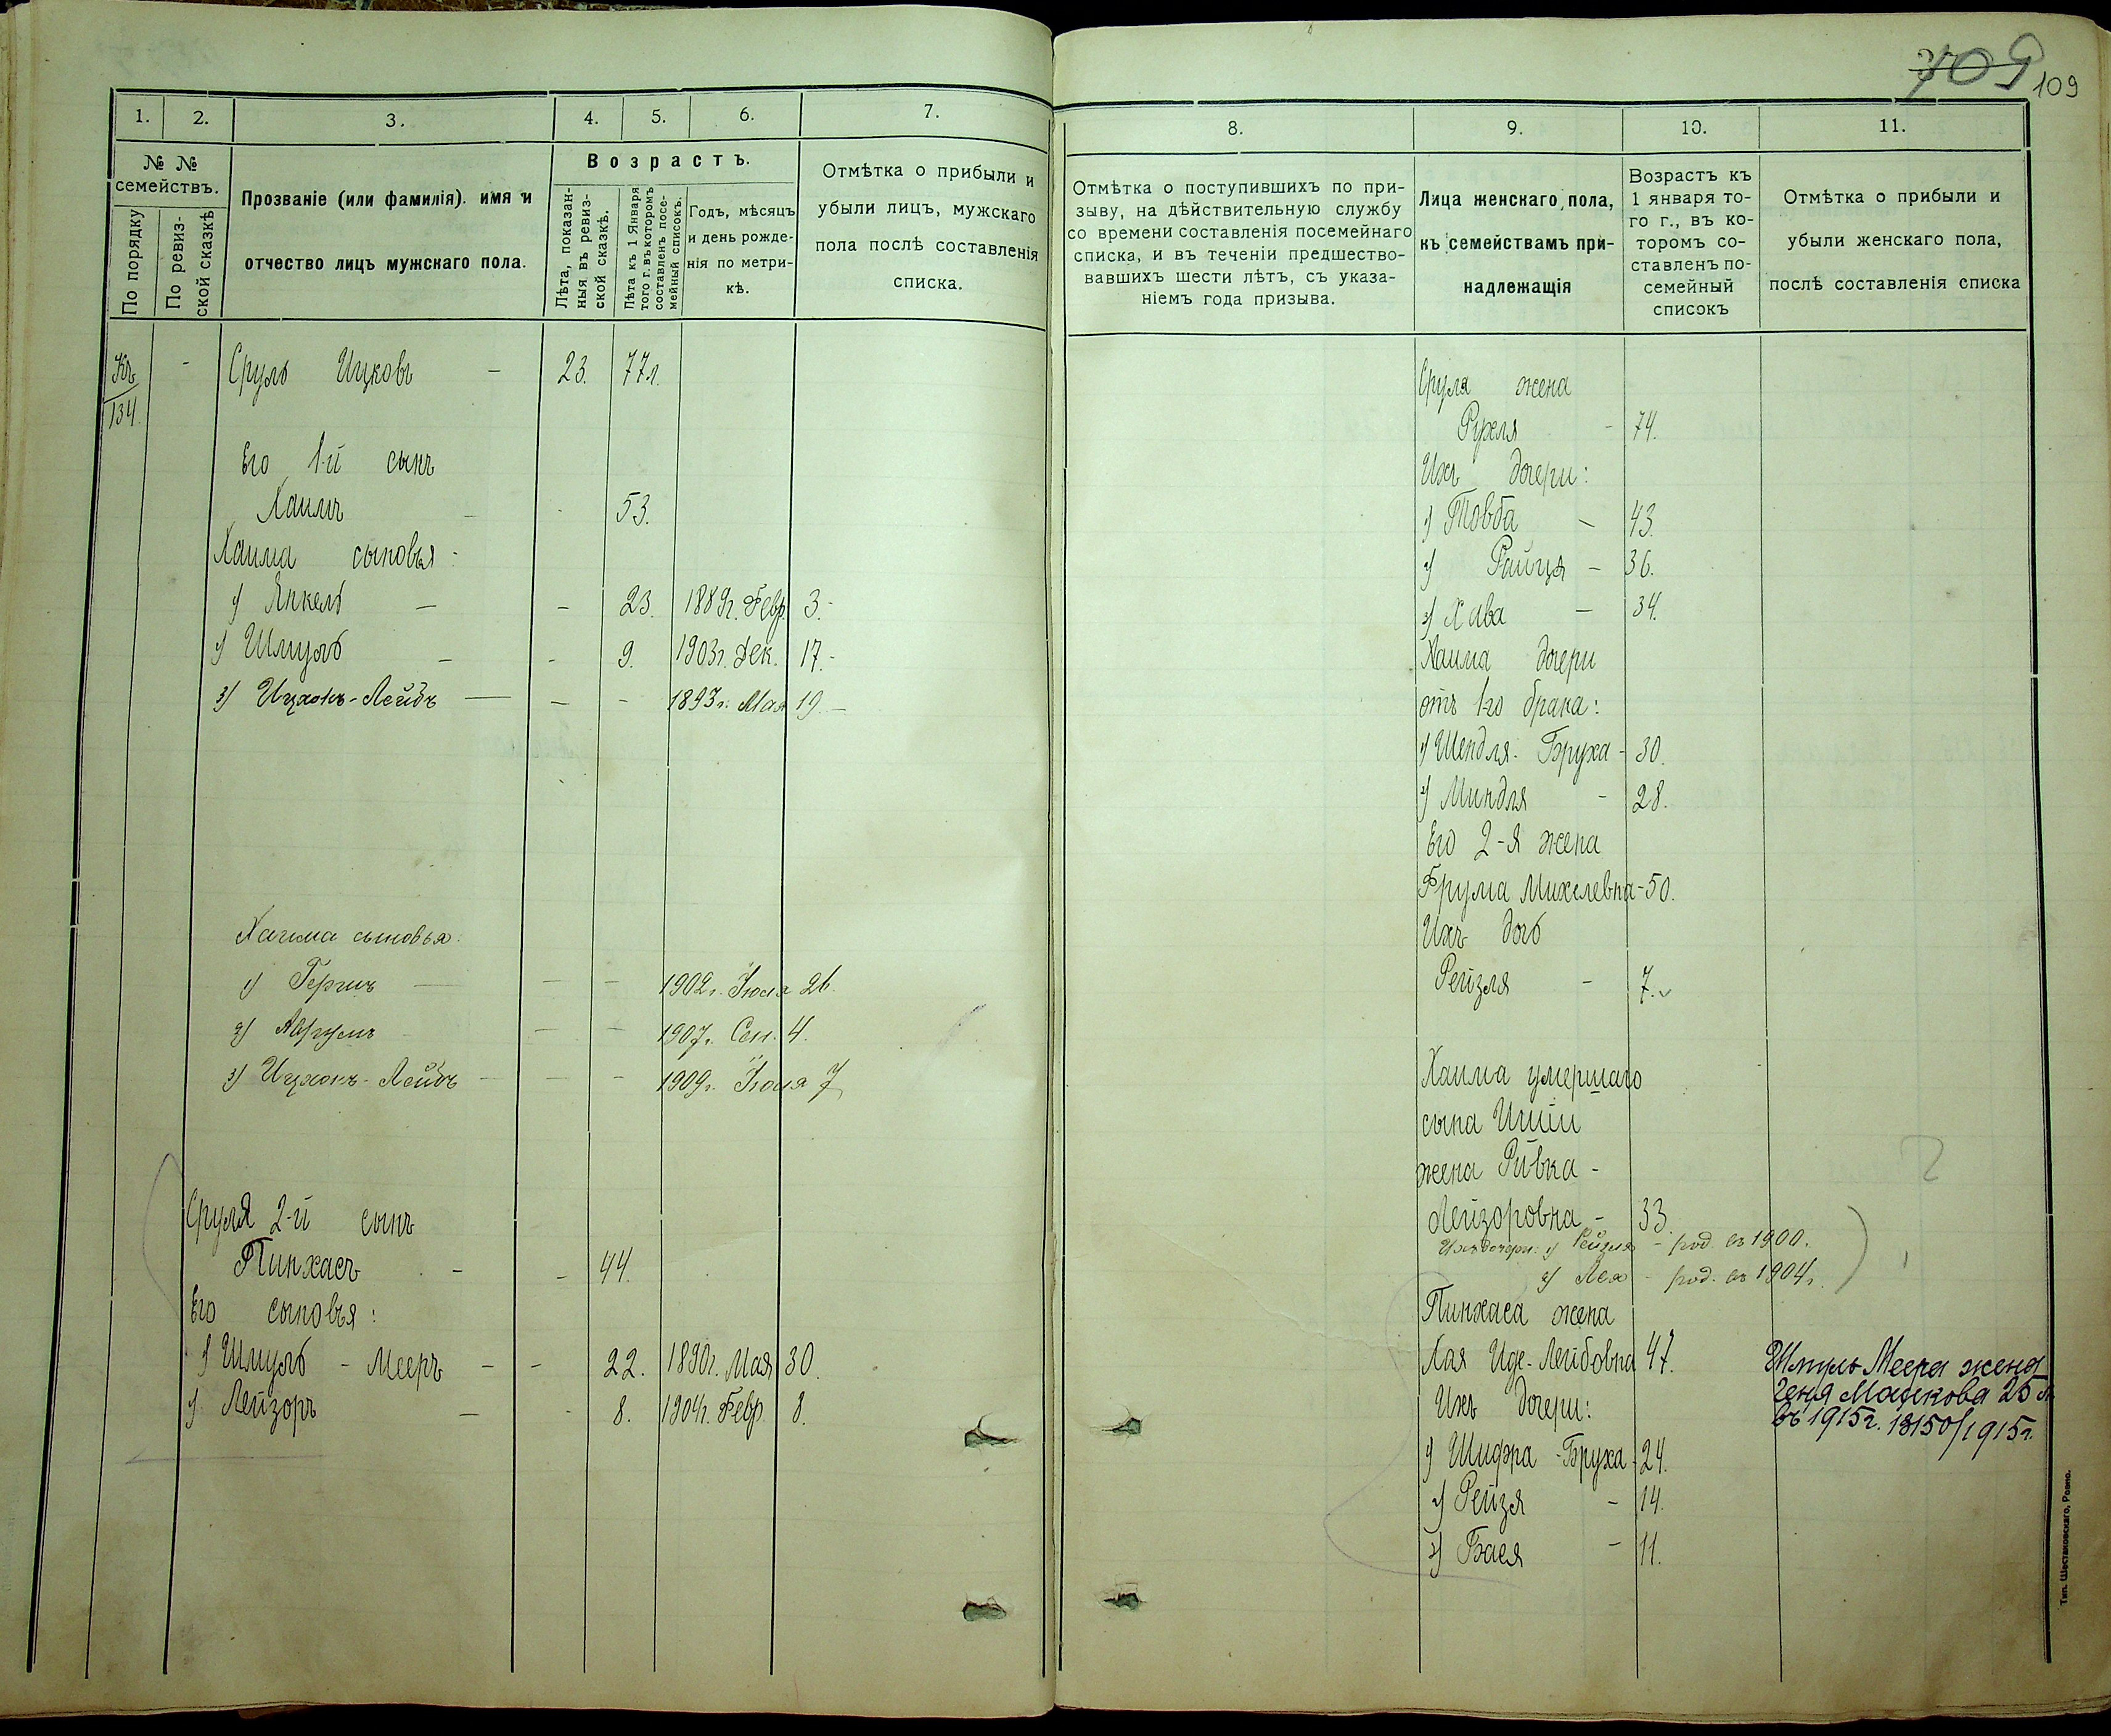 709
109
1. 2. 3. 4. 5. 6. 7.
№ №
семействъ.
По порядку
По ревиз-
ской сказкѣ
Прозваніе (или фамилія). имя и
отчество лицъ мужскаго пола.
Возрастъ.
Лѣта, показан-
ныя въ ревиз-
ской сказкѣ.
Лѣта къ 1 Января
того г. въ которомъ
составленъ посе-
мейный списокъ.
Годъ, мѣсяцъ
и день рожде-
нія по метри-
кѣ.
Отмѣтка о прибыли и
убыли лицъ, мужскаго
пола послѣ составленія
списка.
Къ
134.
- Сруль Ицковъ - 23. 77 л.
Его 1-й сынъ
Хаимъ - - 53.
Хаима сыновья:
1) Янкель - - 23. 1889 г. Февр. 3.-
2) Шмуль - - 9. 1903 г. Дек. 17.-
3) Ицхокъ-Лейбъ - - - 1893 г. Мая 19.-
Хаима сыновья:
1) Гершъ - - - 1902 г. Іюля 26.
2) Аврумъ - - - 1907 г. Сен. 4.
3) Ицхокъ-Лейбъ - - - 1909 г. Іюля 7
Сруля 2-й сынъ
Пинхасъ - - 44.
Его сыновья:
1) Шмуль - Мееръ - - 22. 1890 г. Мая 30.
2) Лейзоръ - - 8. 1904 г. Февр. 8.
8. 9. 10. 11.
Отмѣтка о поступившихъ по при-
зыву, на дѣйствительную службу
со времени составленія посемейнаго
списка, и въ теченіи предшество-
вавшихъ шести лѣтъ, съ указа-
ніемъ года призыва.
Лица женскаго пола,
къ семействамъ при-
надлежащія
Возрастъ къ
1 января то-
го г., въ ко-
торомъ со-
ставленъ по-
семейный
списокъ
Отмѣтка о прибыли и
убыли женскаго пола,
послѣ составленія списка
Сруля жена
Рухля - 74.
Ихъ дочери:
1) Товба - 43.
2) Райця - 36.
3) Хава - 34.
Хаима дочери
отъ 1-го брака:
1) Шендля-Бруха - 30.
2) Миндля - 28.
Его 2-я жена
Фрума Михелевна - 50.
Ихъ дочь
Рейзля - 7.
Хаима умершаго
сына
жена Ривка -
Лейзоровна - 33.
Ихъ дочери: 1) Рейзля - род. въ 1900.
2) Лея - род. въ 1904 г.
Пинхаса жена
Хая Иде-Лейбовна 47.
Ихъ дочери:
1) Шифра-Бруха - 24.
2) Рейзя - 14.
3) Бася - 11.
Шмуль Меера жена
Геня 25 л.
въ 1915 г. 13150/1915 г.
Тип. Шестаковскаго, Ровно.